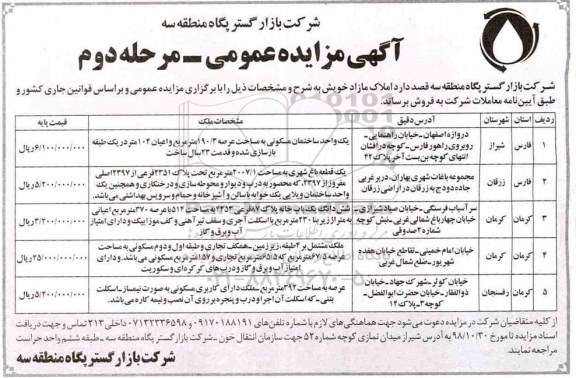 شرکت بازار گستر پگاه منطقه سه
آگهی مزایده عمومی – مرحله دوم
شرکت بازار گستر پگاه منطقه سه قصد دارد املاک مازاد خویش به شرح و مشخصات ذیل را با برگزاری مزایده عمومی و براساس قوانین جاری کشور و
طبق آیین نامه معاملات شرکت به فروش برساند.
ردیف استان شهرستان آدرس دقیق مشخصات ملک قیمت پایه
۱ فارس شیراز دروازه اصفهان - خیابان راهنمایی - روبروی راهور فارس - کوچه درافشان انتهای کوچه بن بست آخر پلاک ۴۲ یک واحد ساختمان مسکونی به مساحت عرصه ۱۹۰/۳ مترمربع و اعیان ۱۰۴ متر در یک طبقه بازسازی شده و قدمت ۲۳ سال ساخت ۶/۱۰۰/۰۰۰/۰۰۰ ریال
۲ فارس زرقان مجموعه باغات شهری بهاران، دربر غربی جاده دودج به زرقان در اراضی زرقان یک قطعه باغ شهری به مساحت ۲۰۰۷/۱ مترمربع تحت پلاک ۲۳۵۱ فرعی از ۲۳۹۷ اصلی مفروز از ۲۳۹۷، که محصور به درب و دیوار و محوطه سازی و درختکاری و همچنین یک واحد ساختمان ویلایی یک خوابه با سالن و آشپزخانه و حمام و سرویس بهداشتی می باشد ۵/۲۰۰/۰۰۰/۰۰۰ ریال
۳ کرمان کرمان سر آسیاب فرسنگی - خیابان صیاد شیرازی - خیابان چهارباغ شمالی غربی - نبش کوچه شماره ۲ صدوقی شش دانگ یک باب خانه پلاک ۸۷ فرعی ۲۴۵۳ به مساحت ۵۱۲ با عرصه ۳۷۰ مترمربع اعیانی به متراژ زیربنا ۲۳۰ مترمربع با اسکلت آجری و سقف تیر آهنی و کف موزاییک و دارای امتیاز آب و برق و گاز ۳/۲۰۰/۰۰۰/۰۰۰ ریال
۴ کرمان کرمان خیابان امام خمینی - تقاطع خیابان هفده شهریور - ضلع شمال غربی ملک مشتمل بر ۲ طبقه، زیرزمین - همکف تجاری و طبقه اول و دوم مسکونی به مساحت عرصه ۶۷/۵ مترمربع که ۶۵/۵ مترمربع تجاری و ۱۵۷ مترمربع مسکونی می باشد. و دارای امتیاز آب و برق و گاز و درب های کرکره ای و سکوریت ۲۵/۰۰۰/۰۰۰/۰۰۰ ریال
۵ کرمان رفسنجان خیابان کوثر - شهرک جهاد - خیابان ذوالفقار - خیابان حضرت ابوالفضل - کوچه ۳ - پلاک ۱۴ عرصه به مساحت ۳۹۲ مترمربع - ملک دارای کاربری مسکونی به صورت نیمساز - اسکلت بتنی - که اسکلت آن اجرا و درب و پنجره بر روی آن نصب و نیمه کاره می باشد. ۵/۲۰۰/۰۰۰/۰۰۰ ریال
از کلیه متقاضیان شرکت در مزایده دعوت می شود جهت هماهنگی های لازم با شماره تلفن های ۰۹۱۷۰۱۸۸۱۹۱ و ۰۷۱۳۲۳۳۶۵۹۸ داخلی ۲۱۳ تماس و جهت دریافت
اسناد مزایده تا مورخ ۹۸/۱۰/۳۰ به آدرس شیراز میدان نمازی کوچه شماره ۵۲ جهت سازمان انتقال خون - شرکت بازار گستر پگاه منطقه سه - طبقه ششم واحد حراست
مراجعه نمایند.
شرکت بازار گستر پگاه منطقه سه